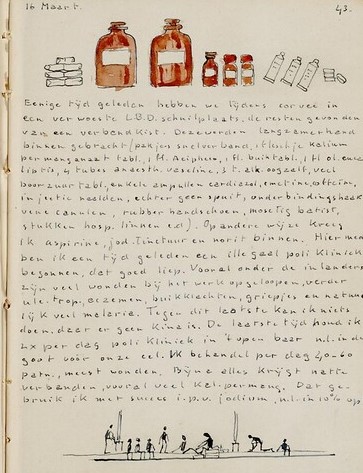 16 Maart. 43.
Eenige tijd geleden hebben we tijdens corveé in
een verwoeste L.B.D. schuilplaats, de resten gevonden
van een verbandkist. Deze werden langzamerhand
binnen gebracht (pakjes snelverband, 1 fleschje kalium
permanganaat tabl., 1 fl. , 1 fl. buiktabl. 1 fl ol. euca
liptis, 4 tubes anaesth. vaseline, 3 t. alk. oogzalf, veel
boorzuur tabl., enkele ampullen cardiazol, emetine, coffeïn,
injectie naalden, echter geen spuit, onderbindingshaak
vene canulen, rubber handschoen, mosetig batist,
stukken hosp. linnen e.d). Op andere wijze kreeg
ik aspirine, jod. tinctuur en norit binnen. Hier mee
ben ik een tijd geleden een illegaal poli kliniek
begonnen, dat goed liep. Vooral onder de inlanders
zijn veel wonden bij het werk opgeloopen, verder
ulc. trop., eczemen, buikklachten, griepjes en natuur
lijk veel malaria. Tegen dit laatste kan ik niets
doen, daar er geen kina is. De laatste tijd houd ik
2x per dag poli kliniek in 't open baar n.l. in de
goot vóór onze cel. Ik behandel per dag 40-60
patn., meest wonden. Bijna alles krijgt natte
verbanden, vooral veel Kal. permang. Dat ge-
bruik ik met succes i.p.v. jodium, n.l. in 10% opl